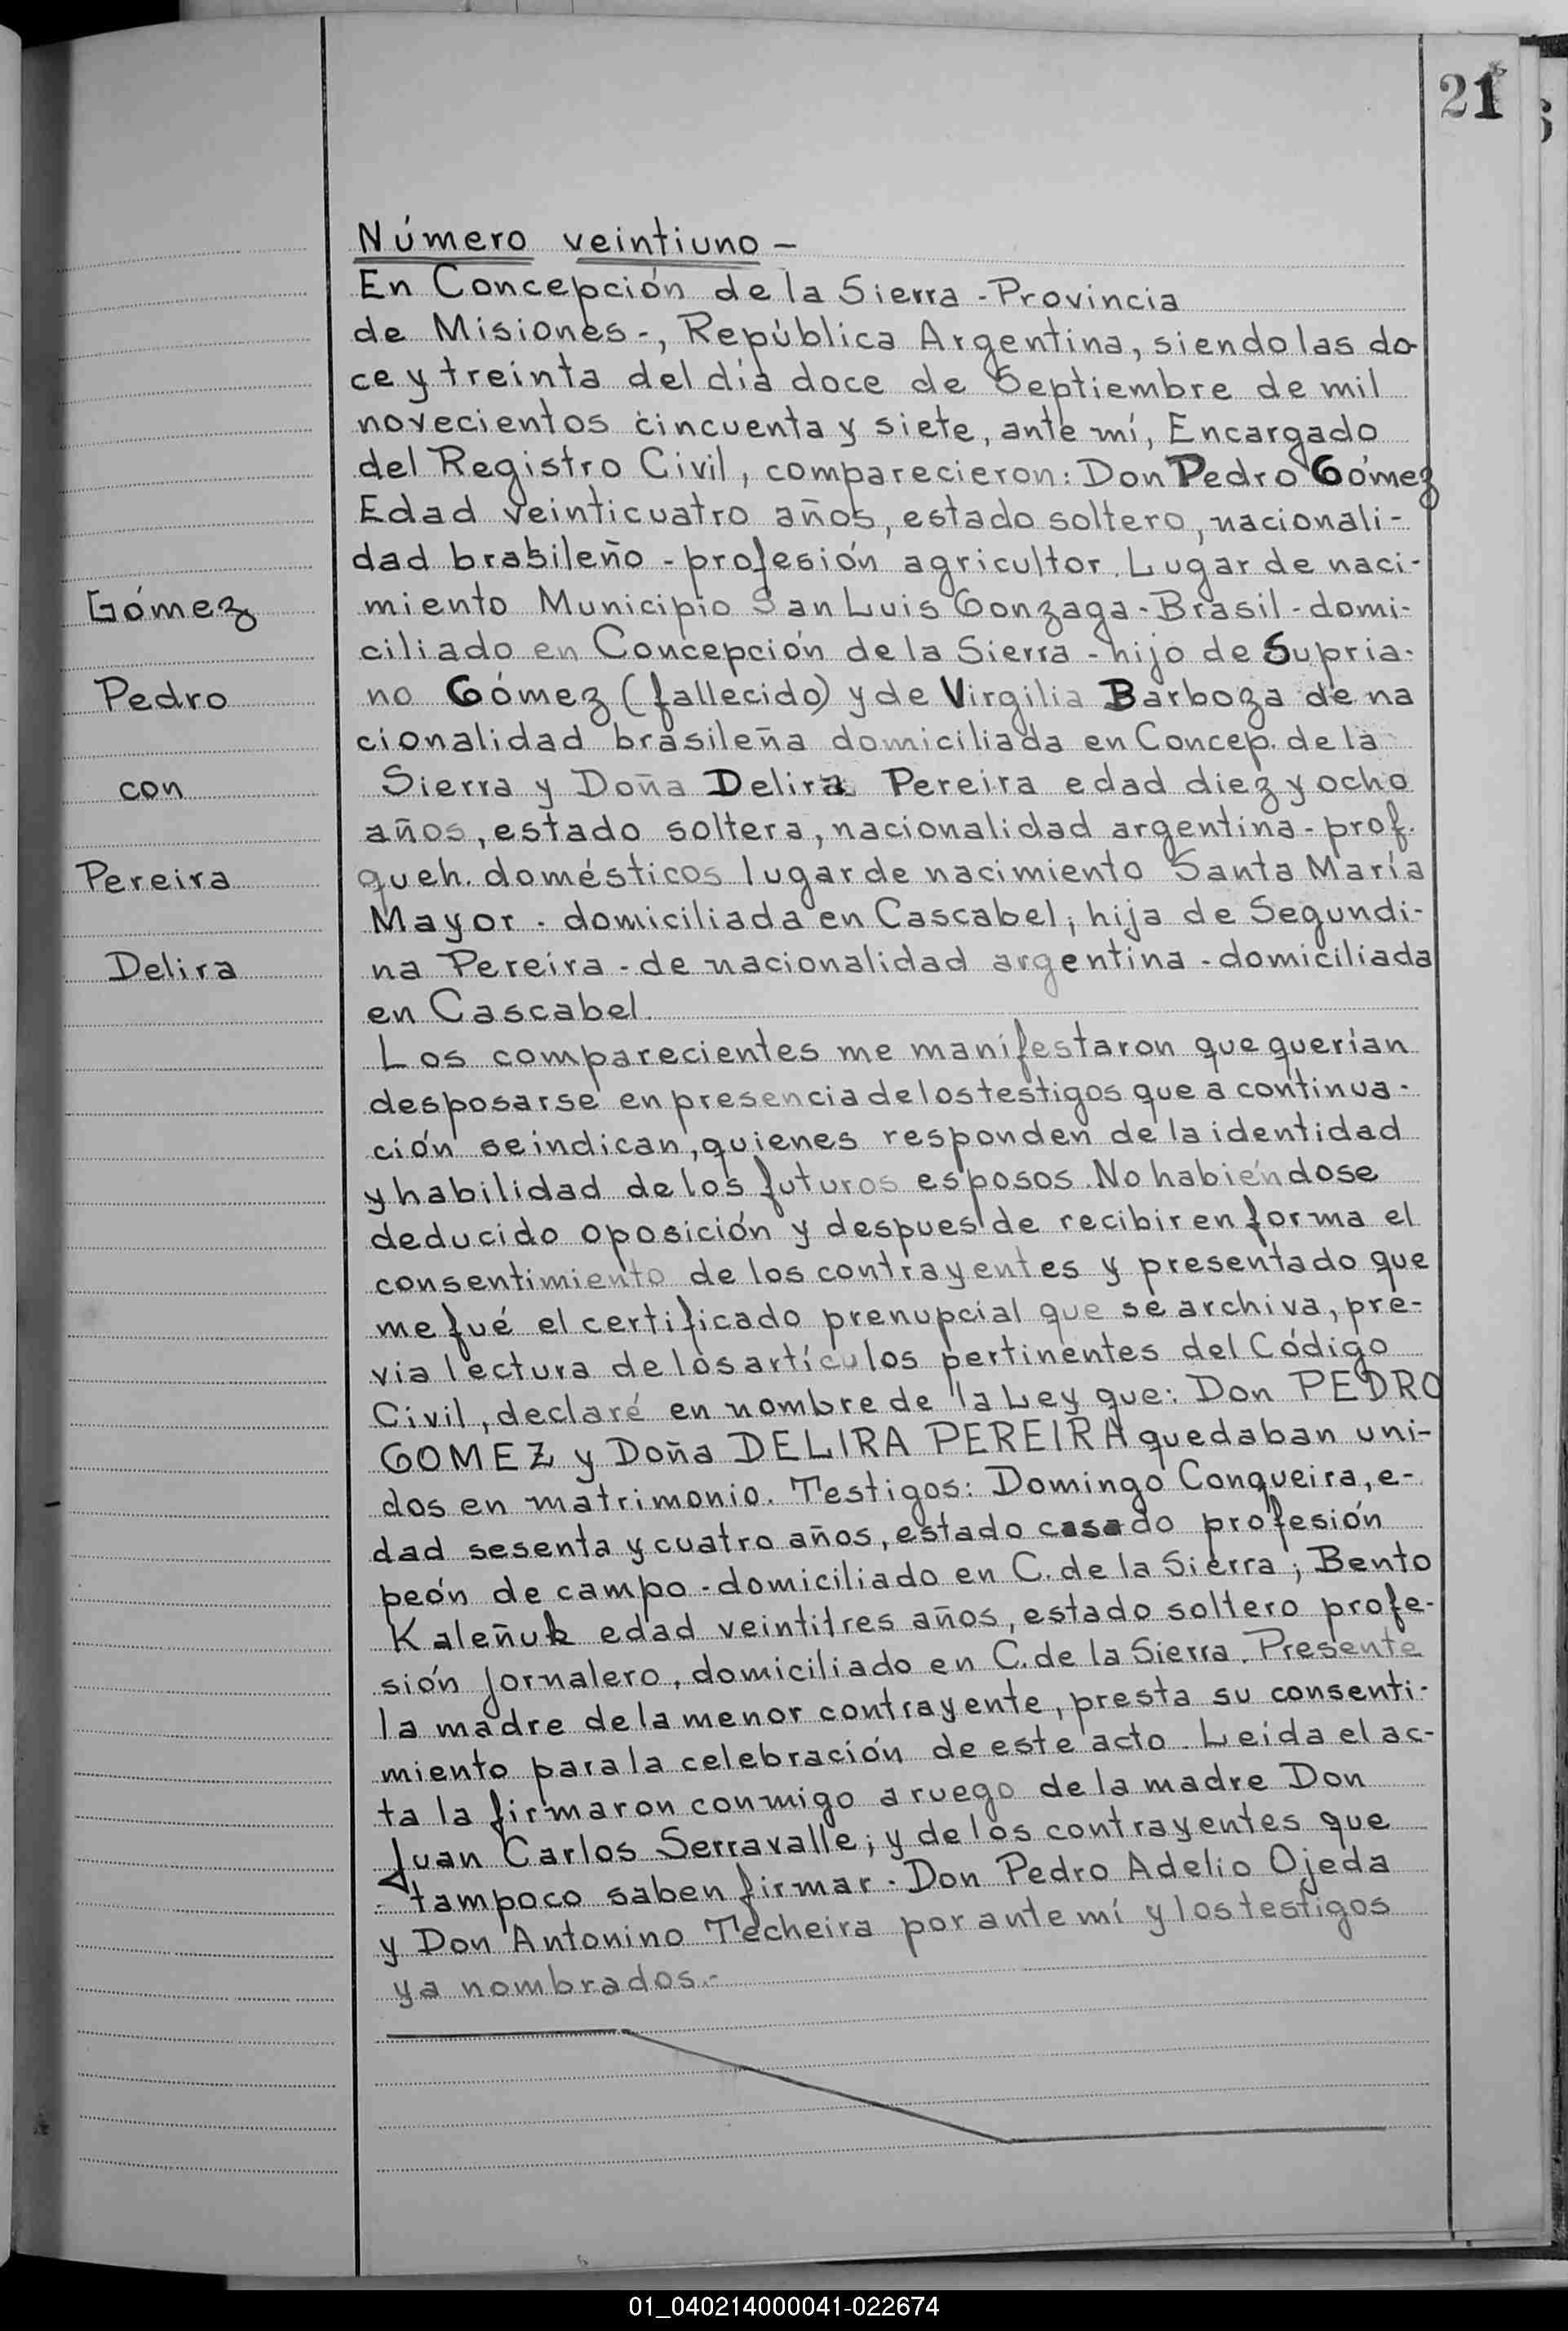 21
Número veintiuno -
En Concepción de la Sierra - Provincia
de Misiones -, República Argentina, siendo las do-
ce y treinta del día doce de Septiembre de mil
novecientos cincuenta y siete, ante mí, Encargado
del Registro Civil, comparecieron: Don Pedro Gómez
Edad veinticuatro años, estado soltero, nacionali-
dad brasileño - profesión agricultor. Lugar de naci-
miento Municipio San Luis Gonzaga - Brasil - domi-
ciliado en Concepción de la Sierra - hijo de Supria-
no Gómez (fallecido) y de Virgilia Barboza de na
cionalidad brasileña domiciliada en Concep. de la
Sierra y Doña Delira Pereira edad diez y ocho
años, estado soltera, nacionalidad argentina - prof.
queh. domésticos lugar de nacimiento Santa María
Mayor - domiciliada en Cascabel, hija de Segundi-
na Pereira - de nacionalidad argentina - domiciliada
en Cascabel.
Los comparecientes me manifestaron que querían
desposarse en presencia de los testigos que a continua-
ción se indican, quienes responden de la identidad
y habilidad de los futuros esposos. No habiéndose
deducido oposición y despues de recibir en forma el
consentimiento de los contrayentes y presentado que
me fué el certificado prenupcial que se archiva, pre-
via lectura de los artículos pertinentes del Código
Civil, declaré en nombre de la Ley que: Don PEDRO
GOMEZ y Doña DELIRA PEREIRA quedaban uni-
dos en matrimonio. Testigos: Domingo Conqueira, e-
dad sesenta y cuatro años, estado casado profesión
peón de campo - domiciliado en C. de la Sierra; Bento
Kaleñuk edad veintitres años, estado soltero profe-
sión jornalero, domiciliado en C. de la Sierra. Presente
la madre de la menor contrayente, presta su consenti-
miento para la celebración de este acto. Leída el ac-
ta la firmaron conmigo a ruego de la madre Don
Juan Carlos Serravalle; y de los contrayentes que
tampoco saben firmar - Don Pedro Adelio Ojeda
y Don Antonino Techeira por ante mí y los testigos
ya nombrados.-
Gómez
Pedro
con
Pereira
Delira
01_040214000041-022674